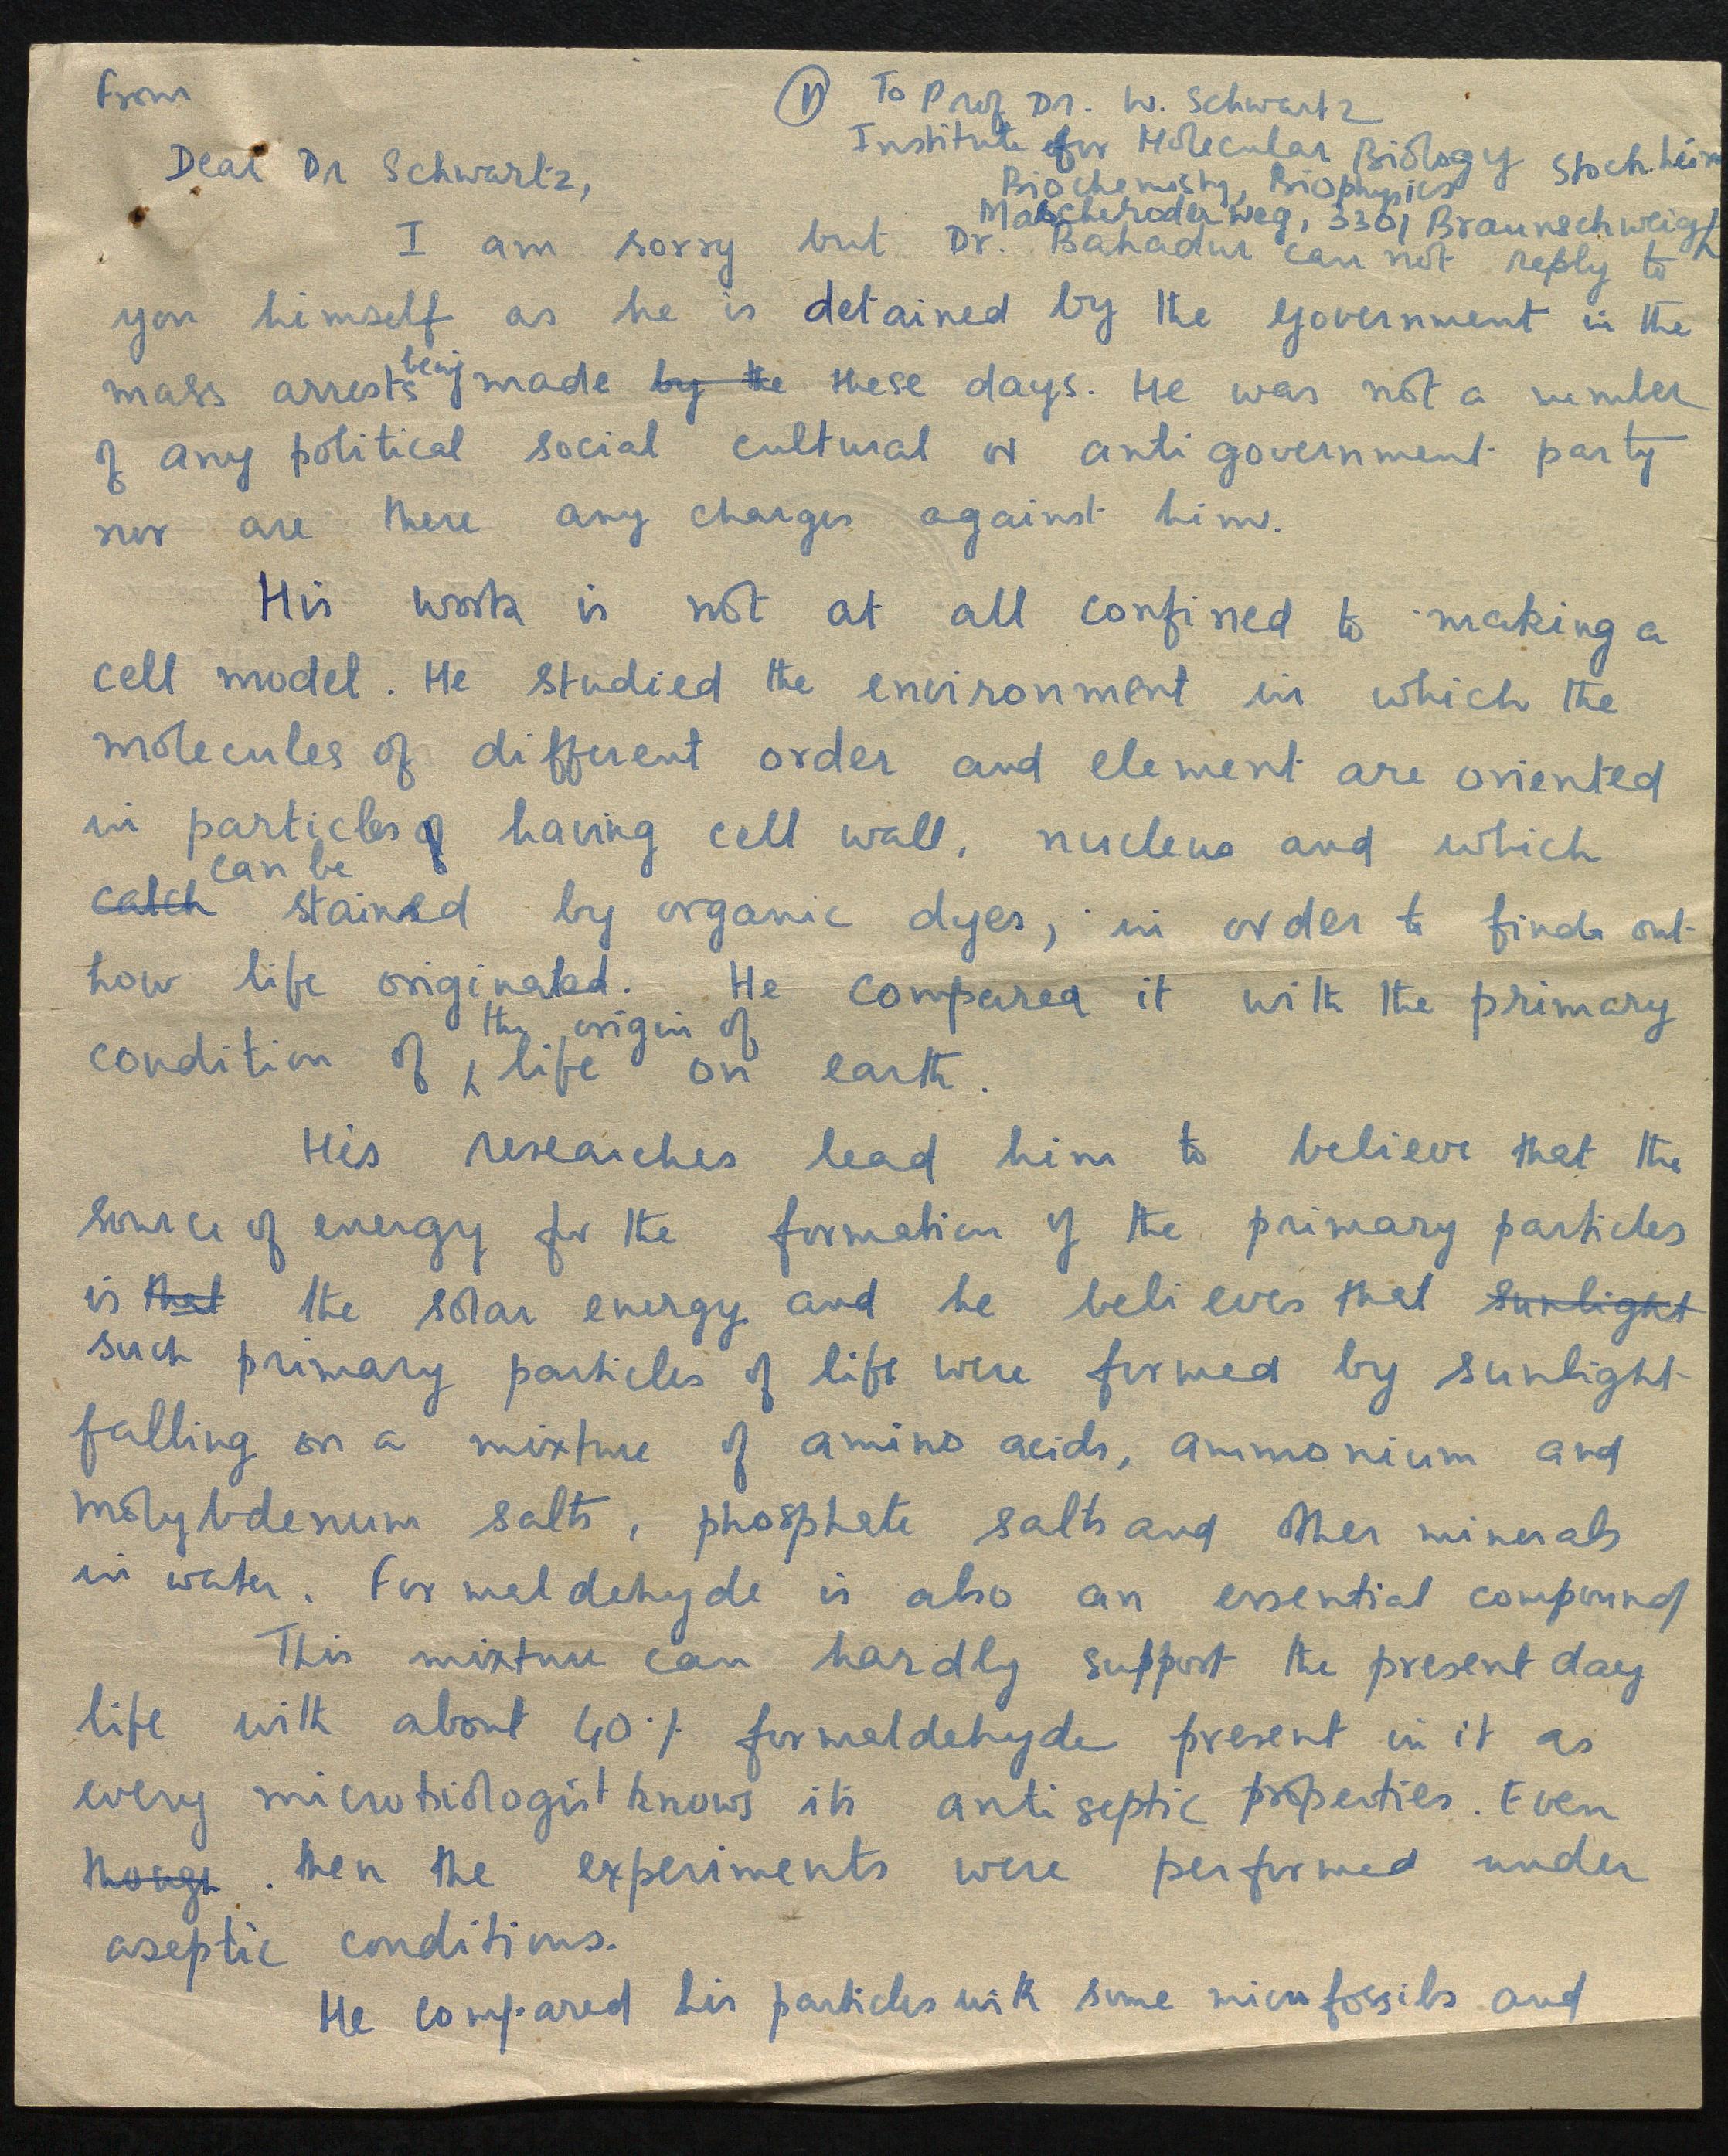 From
① To Prof Dr. W. Schwartz
Institute for Molecular Biology Stochheim
Biochemistry, Biophysics
Mascheroder Weg, 3301 Braunschweigh
Dear Dr Schwartz,
I am sorry but Dr. Bahadur can not reply to
you himself as he is detained by the government in the
mass arrests being made by the these days. He was not a member
of any political social cultural or antigovernment party
nor are there any charges against him.
His work is not at all confined to making a
cell model. He studied the environment in which the
molecules of different order and element are oriented
in particles of having cell wall, nucleus and which
catch can be stained by organic dyes, in order to finds out
how life originated. He compared it with the primary
condition of the origin of life on earth.
His researches lead him to believe that the
source of energy for the formation of the primary particles
is that the solar energy and he believes that sunlight
such primary particles of life were formed by sunlight
falling on a mixture of amino acids, ammonium and
molybdenum salts, phosphate salts and other minerals
in water. Formaldehyde is also an essential compound
This mixture can hardly support the present day
life with about 40% formaldehyde present in it as
every microbiologist knows its antiseptic properties. Even
though. then the experiments were performed under
aseptic conditions.
He compared his particles with some microfossils and